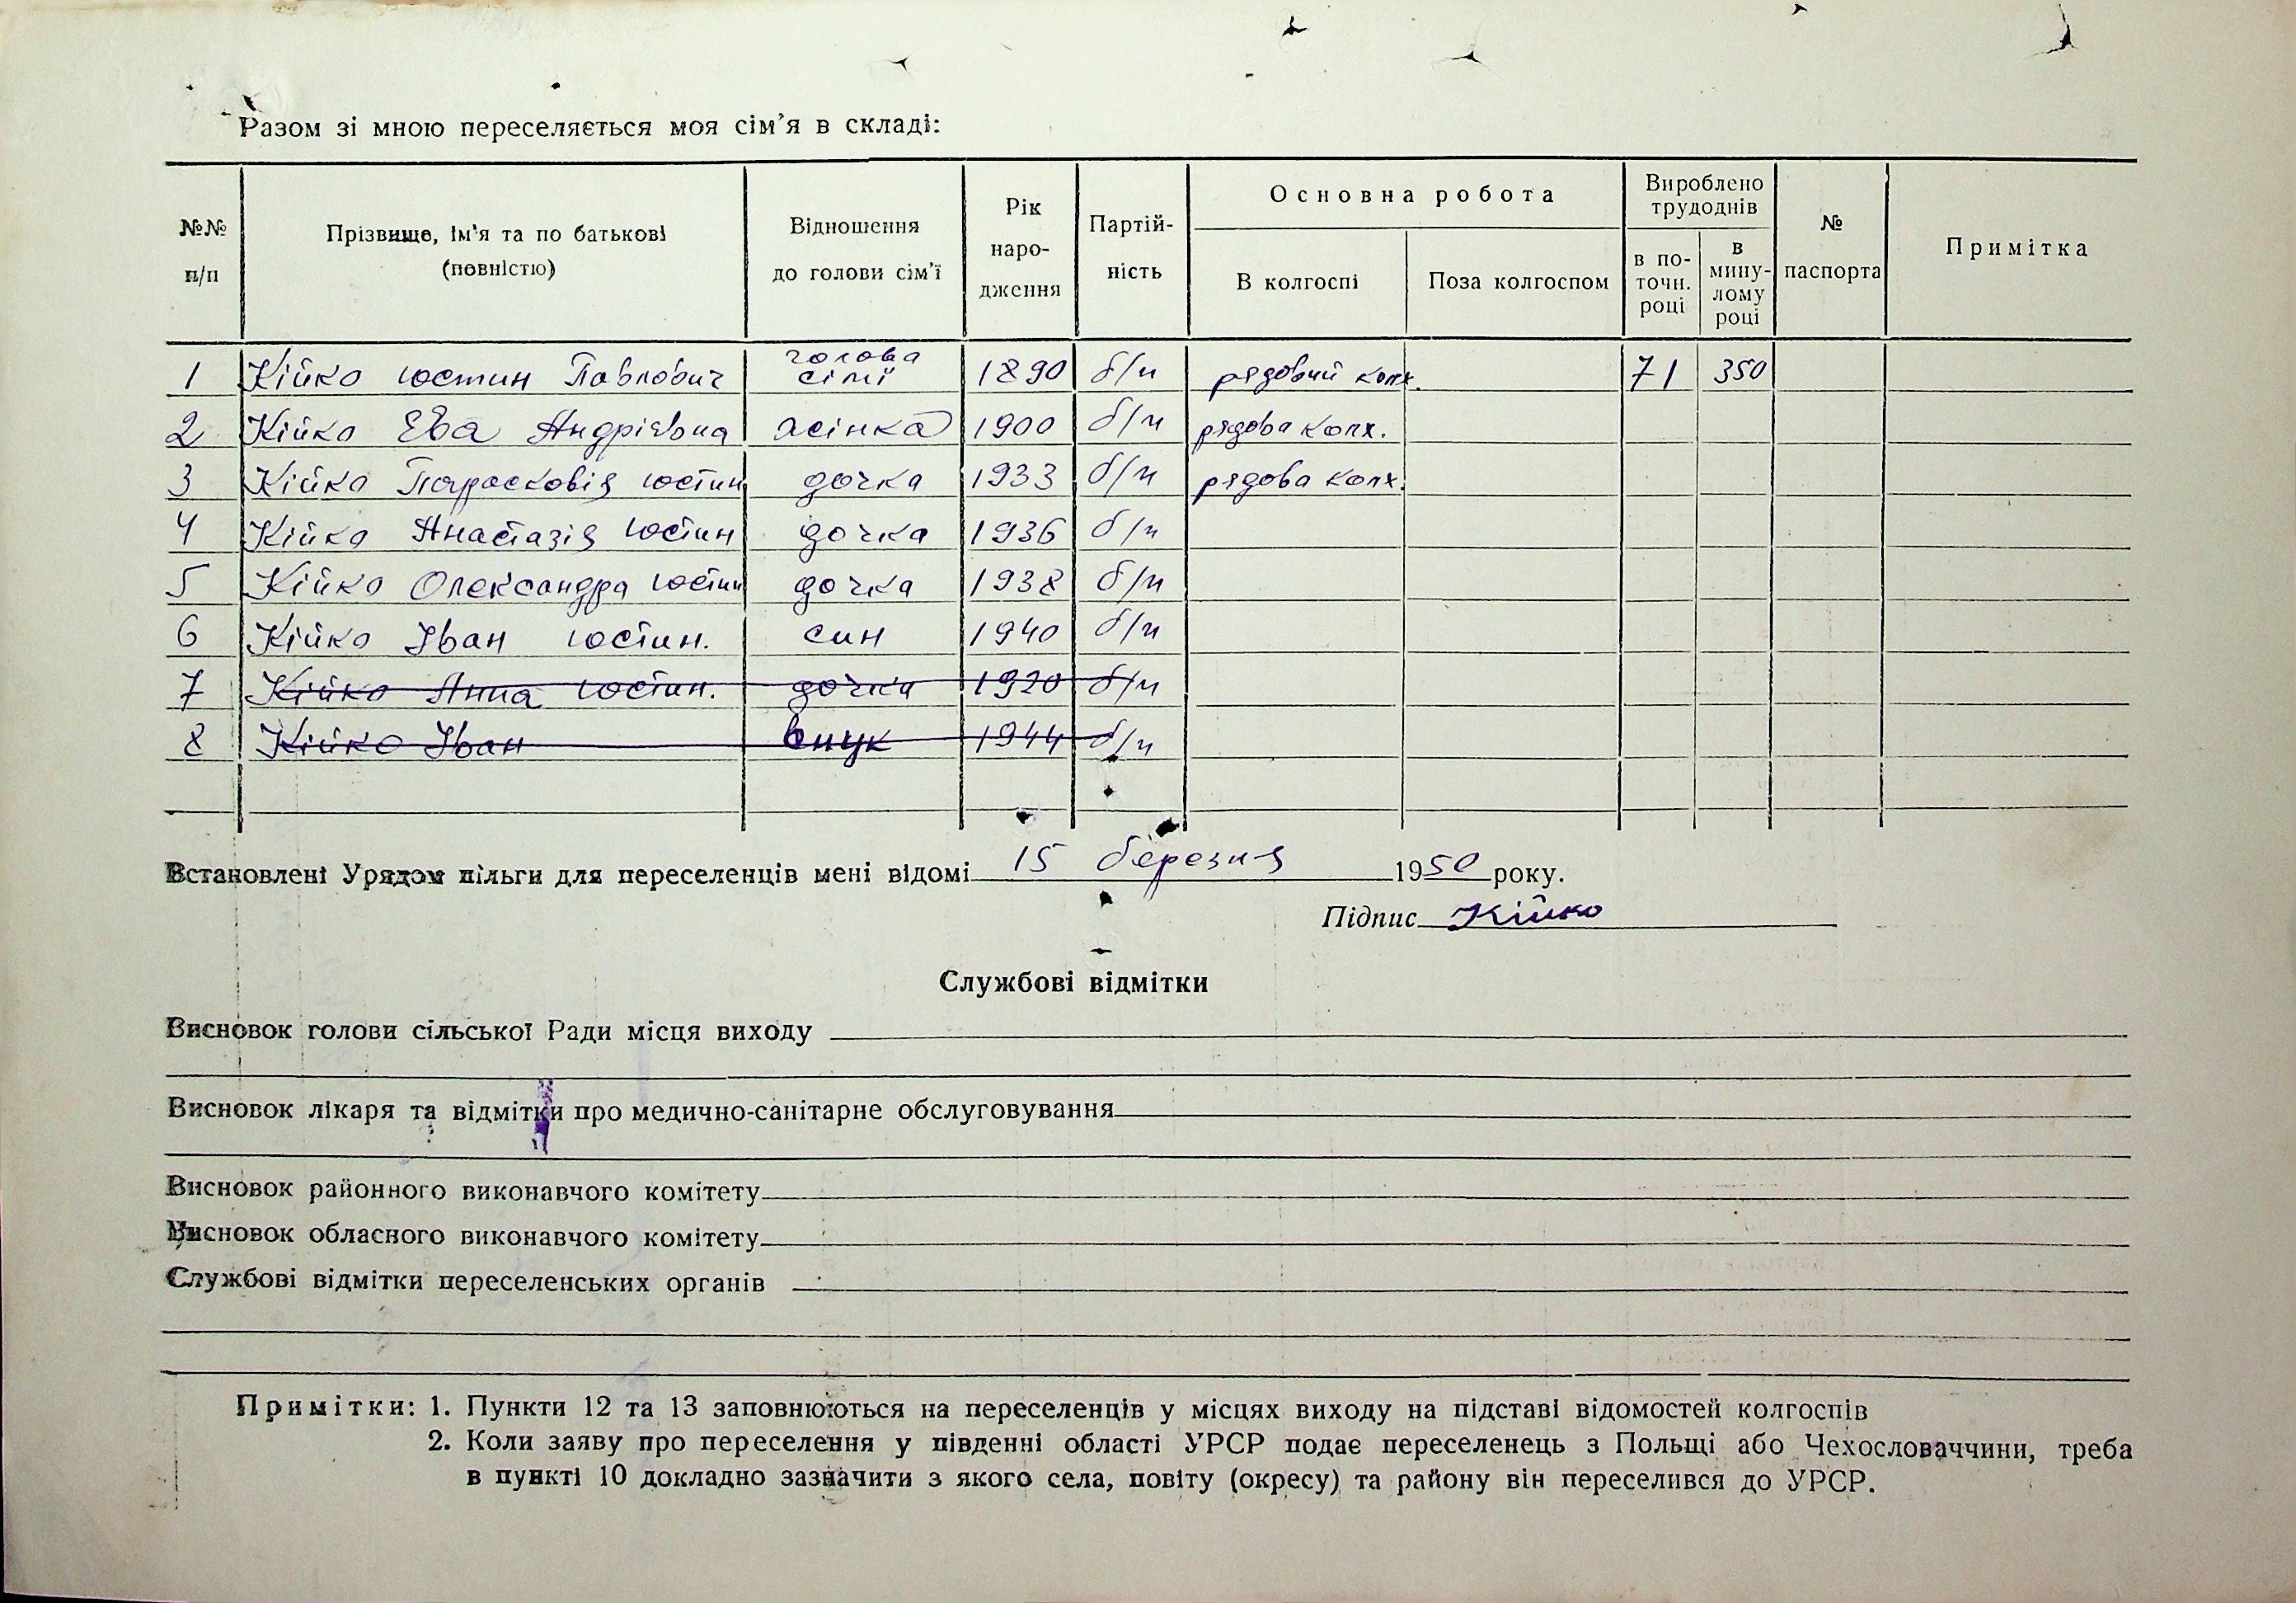 Разом зі мною переселяється моя сім'я в складі:
№№ п/п | Прізвище, ім'я та по батькові (повністю) | Відношення до голови сім'ї | Рік народження | Партійність | Основна робота | Вироблено трудоднів | № паспорта | Примітка
В колгоспі | Поза колгоспом | в поточн. році | в минулому році
1 Кійко Юстин Павлович голова сімї 1890 б/п рядовий колх. 71 350
2 Кійко Ева Андріївна жінка 1900 б/п рядова колх.
3 Кійко Парасковія Юстин дочка 1933 б/п рядова колх.
4 Кійко Анастазія Юстин дочка 1936 б/п
5 Кійко Олександра Юстин дочка 1938 б/п
6 Кійко Іван Юстин. син 1940 б/п
7 Кійко Анна Юстин. дочка 1920 б/п
8 Кійко Іван внук 1944 б/п
Встановлені Урядом пільги для переселенців мені відомі 15 березня 1950 року.
Підпис Кійко
Службові відмітки
Висновок голови сільської Ради місця виходу
Висновок лікаря та відмітки про медично-санітарне обслуговування
Висновок районного виконавчого комітету
Висновок обласного виконавчого комітету
Службові відмітки переселенських органів
Примітки: 1. Пункти 12 та 13 заповнюються на переселенців у місцях виходу на підставі відомостей колгоспів
2. Коли заяву про переселення у південні області УРСР подає переселенець з Польщі або Чехословаччини, треба
в пункті 10 докладно зазначити з якого села, повіту (окресу) та району він переселився до УРСР.